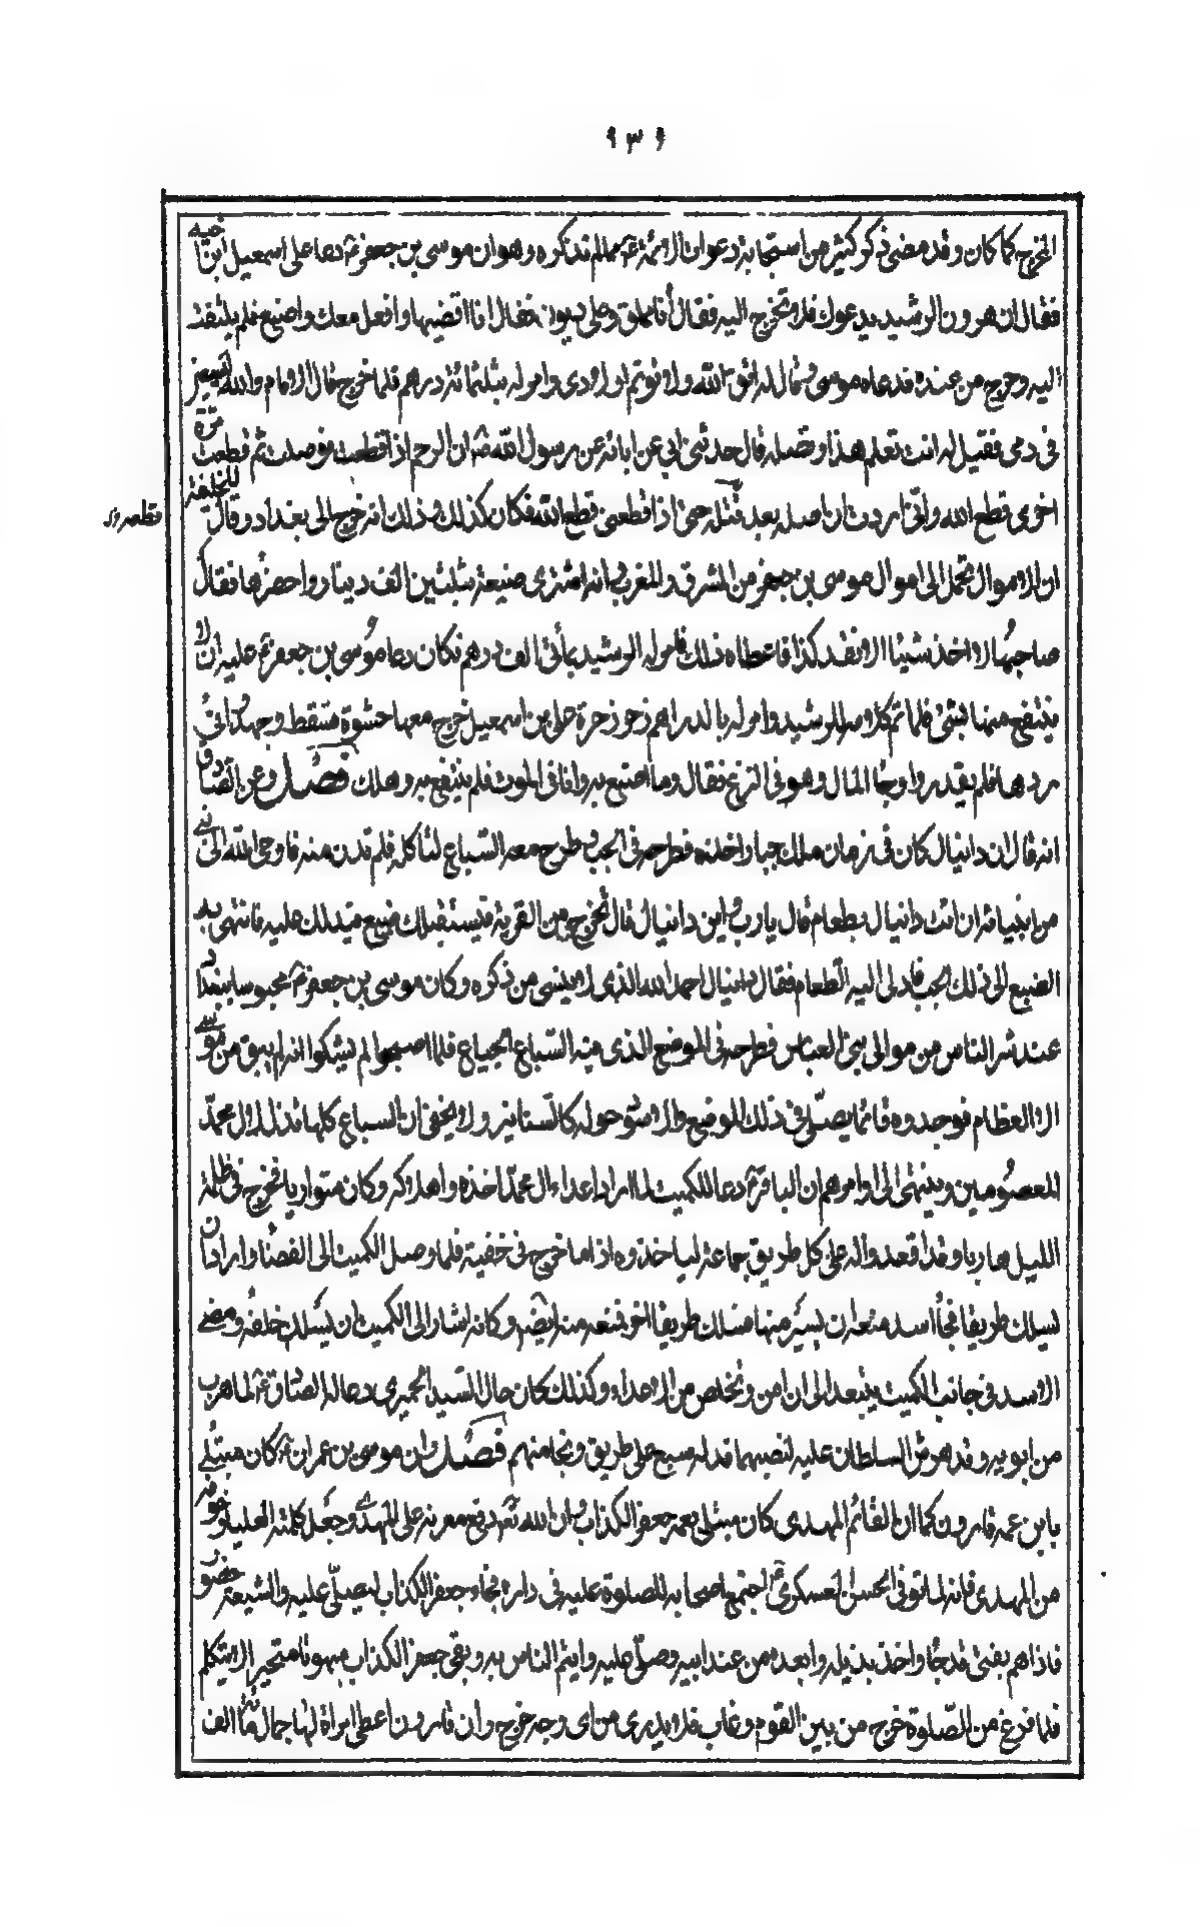 الخرج كما كان وقد مضى ذكر كثير من استجابة دعوات الائمة ع مما لم نذكره وهو ان موسى بن جعفر ع دعا على اسمعيل ابن اخيه
فقال ان هرون الرشيد يدعوك فلا تخرج اليه فقال أنا مملق وعلى ديون فقال انا اقضيها وافعل معك واصنع فلم يلتفت
اليه وخرج من عنده فدعاه موسى وقال له اتق الله ولا توتم اولادى وامر له بثلثمائة درهم فلما خرج قال الامام والله ليسعين
فى دمى فقيل له انت تعلم هذا وتصله قال حدثنى ابى عن ابائه عن رسول الله ص ان الرحم اذا قطعت فوصلت ثم قطعت مرة
اخرى قطع الله وانى اردت ان اصله بعد حتى اذا قطعنى قطعه الله فكان كذلك وذلك انه خرج الى بغداد وقال للخليفة
ان الاموال تحمل الى اموال موسى بن جعفر من المشرق والمغرب وانه اشترى ضيعة بثلثين الف دينار واحضرها فقال
صاحبها لا اخذ شيئا الا نقد كذا فاعطاه ذلك فامر له الرشيد بمأتى الف درهم فكان دعا موسى بن جعفر ع عليه ان لا
ينتفع منها بشئ فلما تم كلامه للرشيد وامر له بالدراهم زحر زحرة على بن اسمعيل خرج معها حشوة فسقط وجهدوا فى
ردها فلم يقدروا وجاء المال وهو فى النزع فقال وما اصنع به وانا فى الموت فلم ينتفع به وهلك فصل وعن الصادق
انه قال ان دانيال كان فى زمان ملك جبار اخذه فطرحه فى الجب وطرح معه السباع لتأكله فلم تدن منه فاوحى الله الى نبى
من انبيائه ان ائت دانيال بطعام قال يا رب واين دانيال قال تخرج من القرية فيستقبلك ضبع فيدلك عليه فانتهى به
الضبع الى ذلك الجب فادلى اليه الطعام فقال دانيال احمد الله الذى لا ينسى من ذكره وكان موسى بن جعفر ع محبوسا ببغداد
عند شر الناس من موالى بنى العباس فطرحه فى الموضع الذى فيه السباع الجياع فلما اصبحوا لم يشكوا انه لم يبق من موسى
الا العظام فوجدوه قائما يصلى فى ذلك الموضع والاسود حوله كالسنانير ولا يخفى ان السباع كلها تذل لال محمد
المعصومين وينتهى الى اوامرهم ان الباقر ع دعا للكميت لما اراد اعداء ال محمد اخذه واهلاكه وكان متواريا فخرج فى ظلمة
الليل هاربا وقد اقعدوا له على كل طريق جماعة ليأخذوه اذا ما خرج فى خفية فلما وصل الكميت الى الفضاء واراد ان
يسلك طريقا فجاء اسد منعه ان يسير منها فسلك طريقا اخر فمنعه منه ايضا وكانه اشار الى الكميت ان يسلك خلفه ومضى
الاسد فى جانب الكميت يتبعه الى ان امن وتخلص من الاعداء وكذلك كان حال السيد الحميرى دعا له الصادق ع لما هرب
من ابويه وقد حرش السلطان عليه لنصبهما فدله سبع على طريق ونجا منهم فصل وان موسى بن عمران ع كان مبتلى
بابن عمه قارون كما ان القائم المهدى كان مبتلى بعمه جعفر الكذاب وان الله تعم دفع معرته على المهدى وجعل كلمته العليا
من المهدى فانه لما توفى الحسن العسكرى ع اجتمع اصحابه للصلوة عليه فى داره فجاء جعفر الكذاب ليصلى عليه والشيعة حضور
فاذا هم بفتى قد جاء واخذ بذيله وابعده من عند ابيه وصلى عليه وايتم الناس به وبقى جعفر الكذاب مبهوتا متحيرا لا يتكلم
فلما فرغ من الصلوة خرج من بين القوم وغاب فلا يدرى من اى وجه خرج وان قارون اعطى امراة لها جمال مائة الف